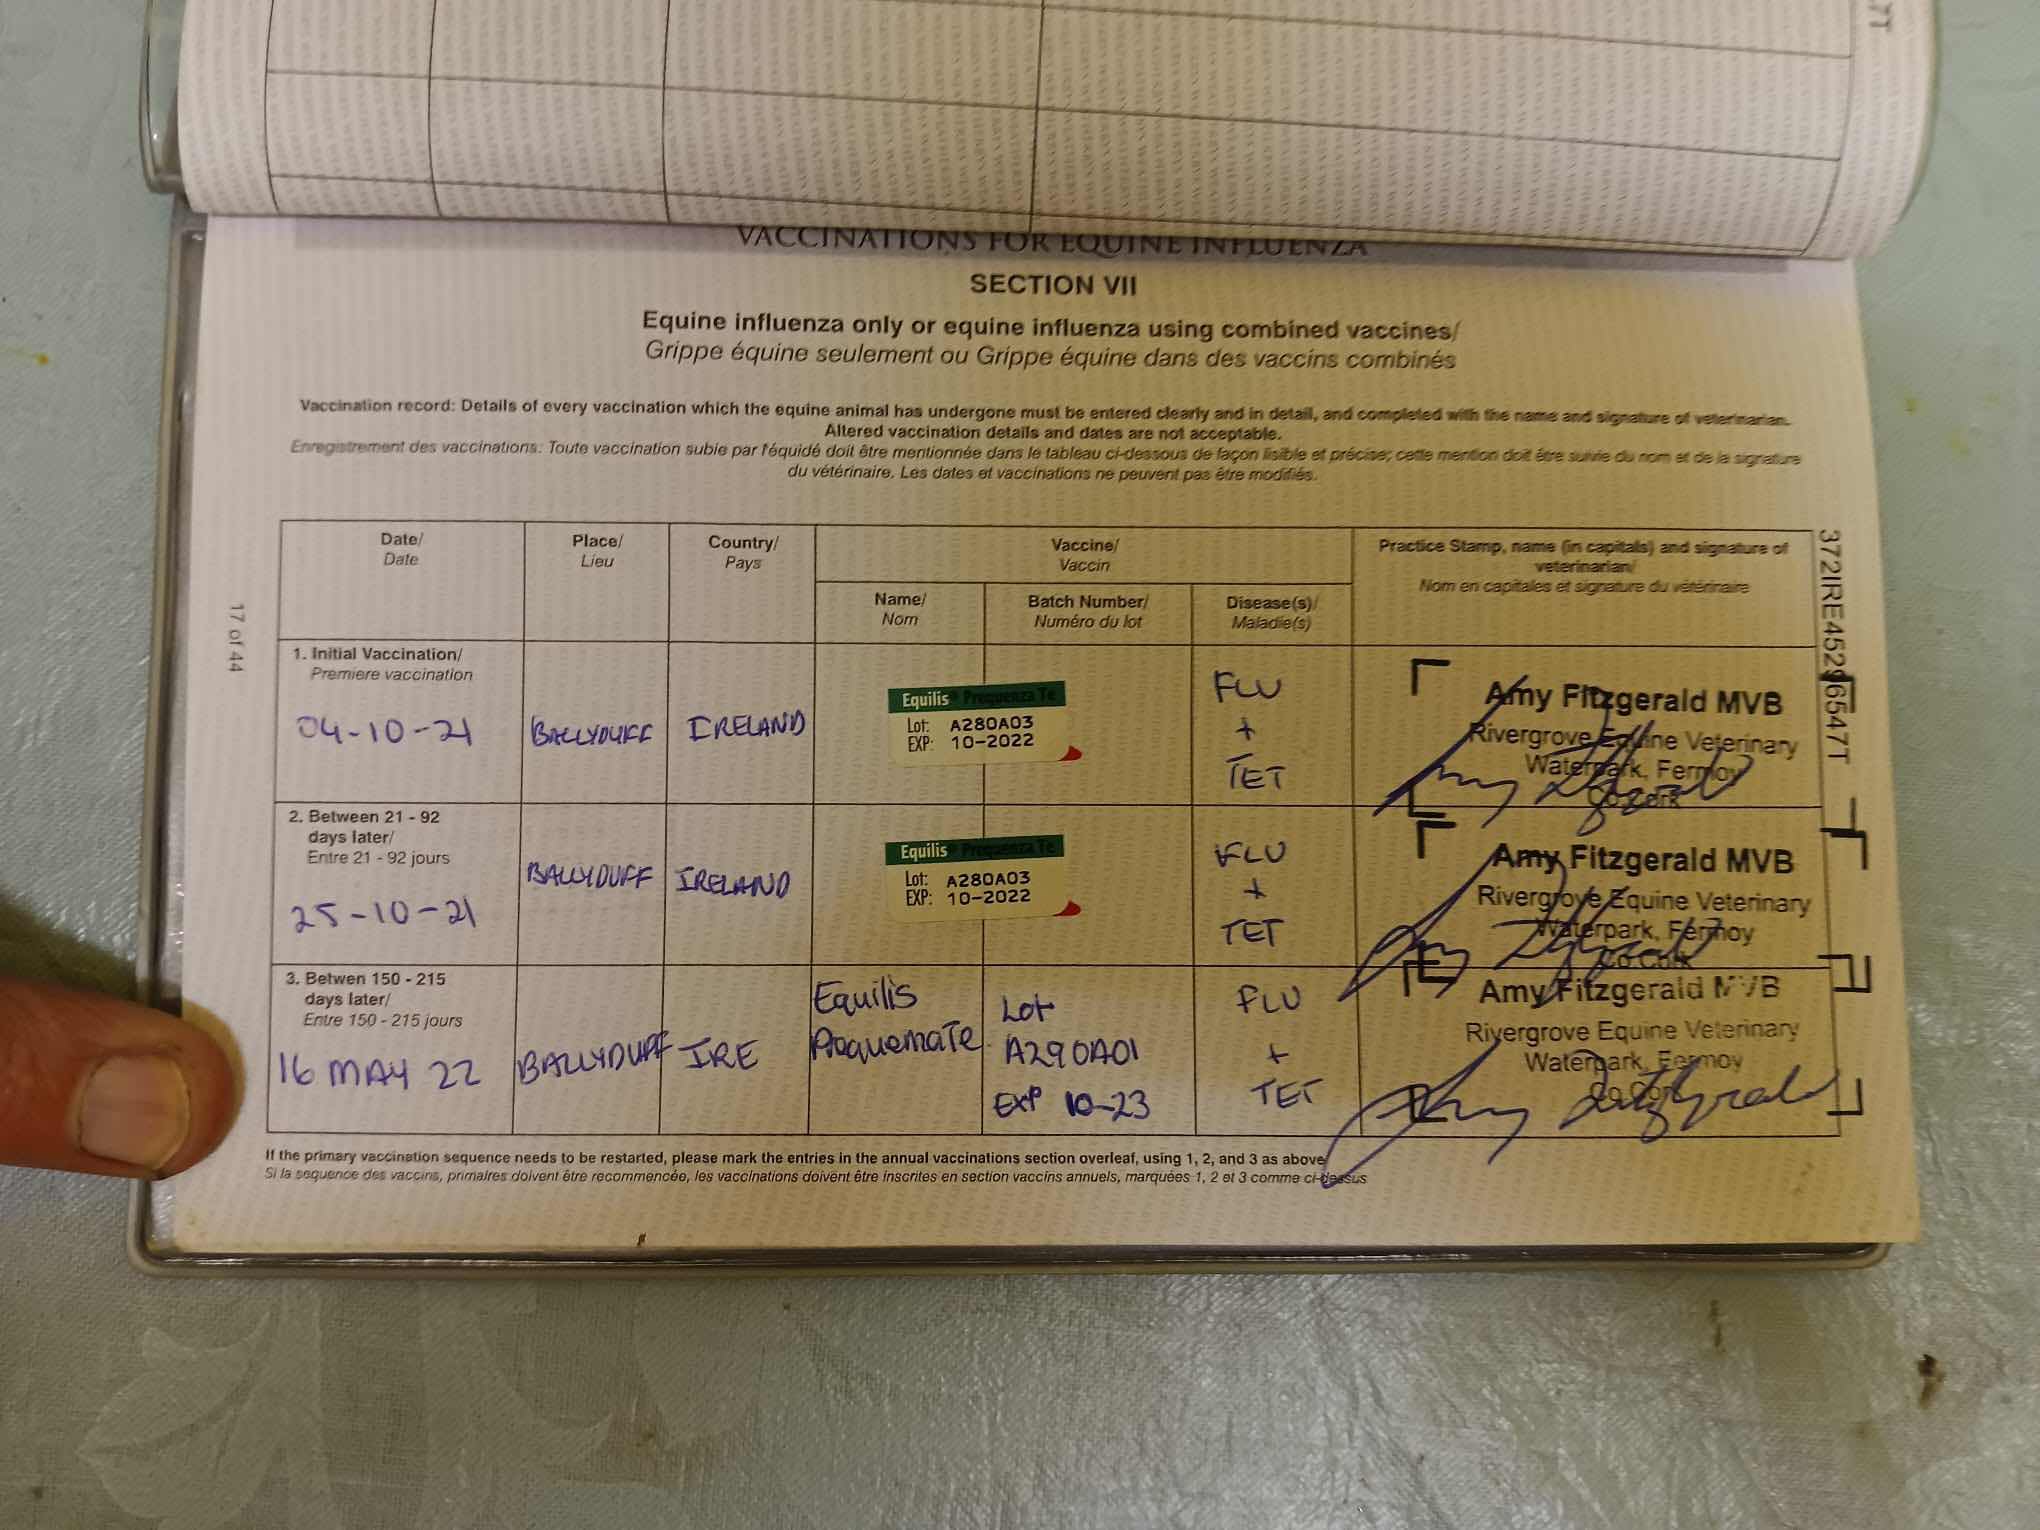 VACCINATIONS FOR EQUINE INFLUENZA
SECTION VII
Equine influenza only or equine influenza using combined vaccines/
Grippe équine seulement ou Grippe équine dans des vaccins combinés
Vaccination record: Details of every vaccination which the equine animal has undergone must be entered clearly and in detail, and completed with the name and signature of veterinarian.
Altered vaccination details and dates are not acceptable.
Enregistrement des vaccinations: Toute vaccination subie par l'équidé doit être mentionnée dans le tableau ci-dessous de façon lisible et précise; cette mention doit être suivie du nom et de la signature
du vétérinaire. Les dates et vaccinations ne peuvent pas être modifiés.
Date/
Date
Place/
Lieu
Country/
Pays
Vaccine/
Vaccin
Name/
Nom
Batch Number/
Numéro du lot
Disease(s)/
Maladie(s)
Practice Stamp, name (in capitals) and signature of
veterinarian/
Nom en capitales et signature du vétérinaire
1. Initial Vaccination/
Premiere vaccination
04-10-21
BALLYDUFF
IRELAND
Equilis Prequenza Te
Lot: A280A03
EXP: 10-2022
FLU
+
TET
Amy Fitzgerald MVB
Rivergrove Equine Veterinary
Waterpark, Fermoy
Co Cork
2. Between 21 - 92
days later/
Entre 21 - 92 jours
25-10-21
BALLYDUFF
IRELAND
Equilis Prequenza Te
Lot: A280A03
EXP: 10-2022
FLU
+
TET
Amy Fitzgerald MVB
Rivergrove Equine Veterinary
Waterpark, Fermoy
Co Cork
3. Betwen 150 - 215
days later/
Entre 150 - 215 jours
16 MAY 22
BALLYDUFF
IRE
Equilis
Lot
A290A01
EXP 10-23
FLU
+
TET
Amy Fitzgerald MVB
Rivergrove Equine Veterinary
Waterpark, Fermoy
Co Cork
If the primary vaccination sequence needs to be restarted, please mark the entries in the annual vaccinations section overleaf, using 1, 2, and 3 as above/
Si la sequence des vaccins, primaires doivent être recommencée, les vaccinations doivent être inscrites en section vaccins annuels, marquées 1, 2 et 3 comme ci-dessus
17 of 44